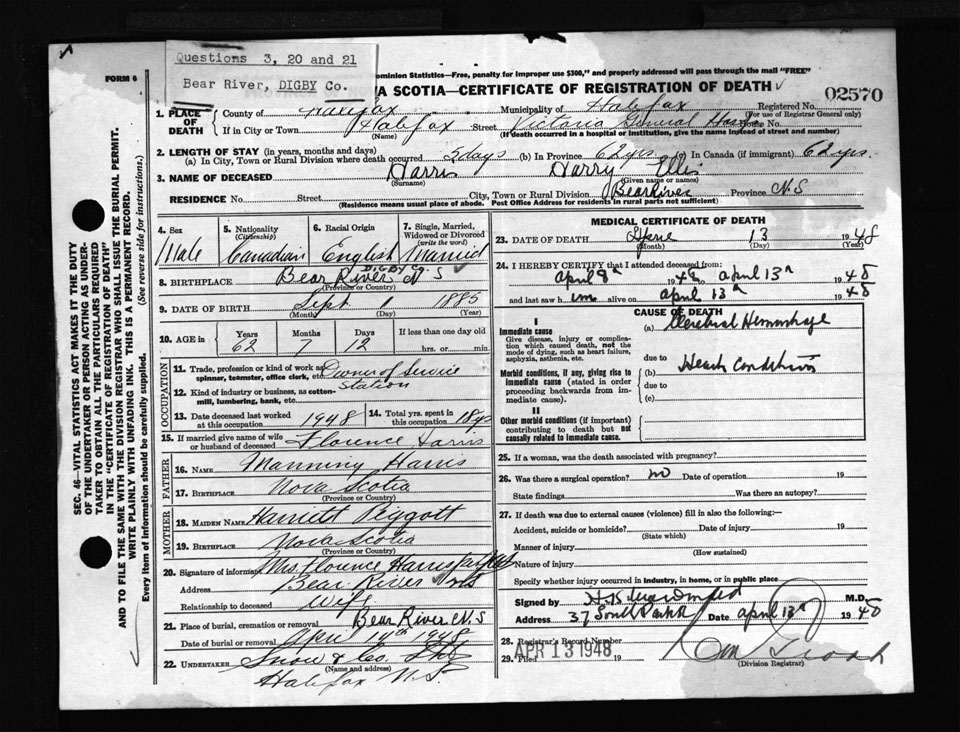 FORM 6
Questions 3, 20 and 21
Bear River, DIGBY Co.
ominion Statistics—Free, penalty for improper use $300," and properly addressed will pass through the mail "FREE"
A SCOTIA—CERTIFICATE OF REGISTRATION OF DEATH
02570
1. PLACE OF DEATH
County of Halifax Municipality of Halifax Registered No.
(For use of Registrar General only)
If in City or Town Halifax Street Victoria General Hosp. House No.
(Name) (If death occurred in a hospital or institution, give the name instead of street and number)
2. LENGTH OF STAY (in years, months and days)
(a) In City, Town or Rural Division where death occurred 5 days (b) In Province 62 yrs (c) In Canada (if immigrant) 62 yrs.
3. NAME OF DECEASED Harris Harry Ellis
(Surname) (Given name or names)
RESIDENCE No. Street City, Town or Rural Division Bear River Province N.S
(Residence means usual place of abode. Post Office Address for residents in rural parts not sufficient)
4. Sex Male
5. Nationality (Citizenship) Canadian
6. Racial Origin English
7. Single, Married, Widowed or Divorced (write the word) Married
8. BIRTHPLACE Bear River DIGBY Co. N.S
(Province or Country)
9. DATE OF BIRTH Sept 1 1885
(Month) (Day) (Year)
10. AGE in Years Months Days If less than one day old
62 7 12 hrs. or min.
OCCUPATION
11. Trade, profession or kind of work as spinner, teamster, office clerk, etc. Owner of Service
Station
12. Kind of industry or business, as cotton-mill, lumbering, bank, etc.
13. Date deceased last worked at this occupation 1948
14. Total yrs. spent in this occupation 18 yrs
15. If married give name of wife or husband of deceased Florence Harris
FATHER
16. NAME Manning Harris
17. BIRTHPLACE Nova Scotia
(Province or Country)
MOTHER
18. MAIDEN NAME Harriett Piggott
19. BIRTHPLACE Nova Scotia
(Province or Country)
20. Signature of informant Mrs. Florence Harris
Address Bear River N.S
Relationship to deceased Wife
21. Place of burial, cremation or removal Bear River N.S
Date of burial or removal April 14th 1948
22. UNDERTAKER Snow & Co. Ltd
(Name and address)
Halifax N.S.
MEDICAL CERTIFICATE OF DEATH
23. DATE OF DEATH 13 1948
(Month) (Day) (Year)
24. I HEREBY CERTIFY that I attended deceased from:
April 8th 1948 to April 13th 1948
and last saw him alive on April 13th 1948
CAUSE OF DEATH
I
Immediate cause (a) Cerebral Hemorrhage
Give disease, injury or complication which caused death, not the mode of dying, such as heart failure, asphyxia, asthenia, etc.
due to
Morbid conditions, if any, giving rise to immediate cause (stated in order proceeding backwards from immediate cause).
(b) Heart Condition
due to
(c)
II
Other morbid conditions (if important) contributing to death but not causally related to immediate cause.
25. If a woman, was the death associated with pregnancy?
26. Was there a surgical operation? no Date of operation 19
State findings Was there an autopsy?
27. If death was due to external causes (violence) fill in also the following:—
Accident, suicide or homicide? Date of injury 19
(State which)
Manner of injury
(How sustained)
Nature of injury
Specify whether injury occurred in industry, in home, or in public place
Signed by M.D.
Address 37 South Park St Date April 13th 1948
28. Registrar's Record Number
29. Filed APR 13 1948 19
(Division Registrar)
SEC. 46—VITAL STATISTICS ACT MAKES IT THE DUTY
OF THE UNDERTAKER OR PERSON ACTING AS UNDER-
TAKER TO OBTAIN ALL THE PARTICULARS REQUIRED
IN THE "CERTIFICATE OF REGISTRATION OF DEATH"
AND TO FILE THE SAME WITH THE DIVISION REGISTRAR WHO SHALL ISSUE THE BURIAL PERMIT.
WRITE PLAINLY WITH UNFADING INK. THIS IS A PERMANENT RECORD.
Every item of information should be carefully supplied. (See reverse side for instructions.)